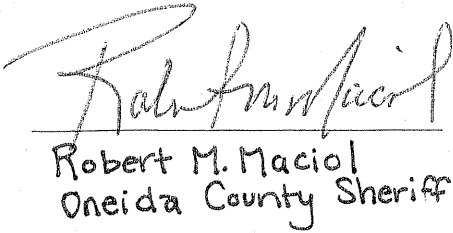 Robert M. Maciol
Robert M. Maciol
Oneida County Sheriff